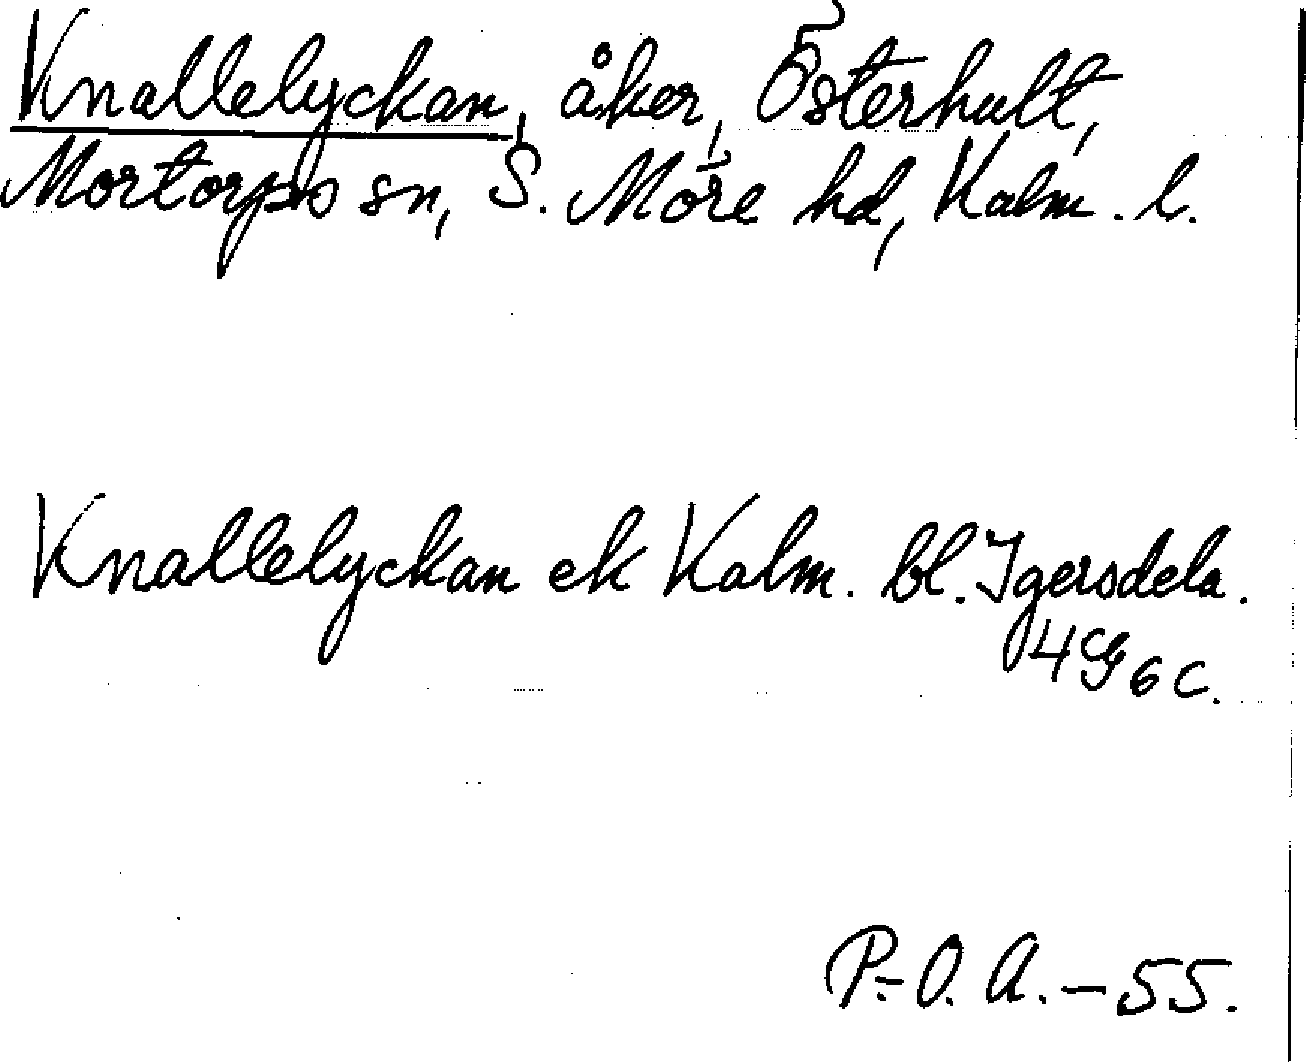 Knallelyckan, åker, Österhult,
Mortorps sn, S. Möre hd, Kalm. l.
Knallelyckan ek Kalm. bl. Igersdela.
4G 6c.
P.-O. A. - 55.